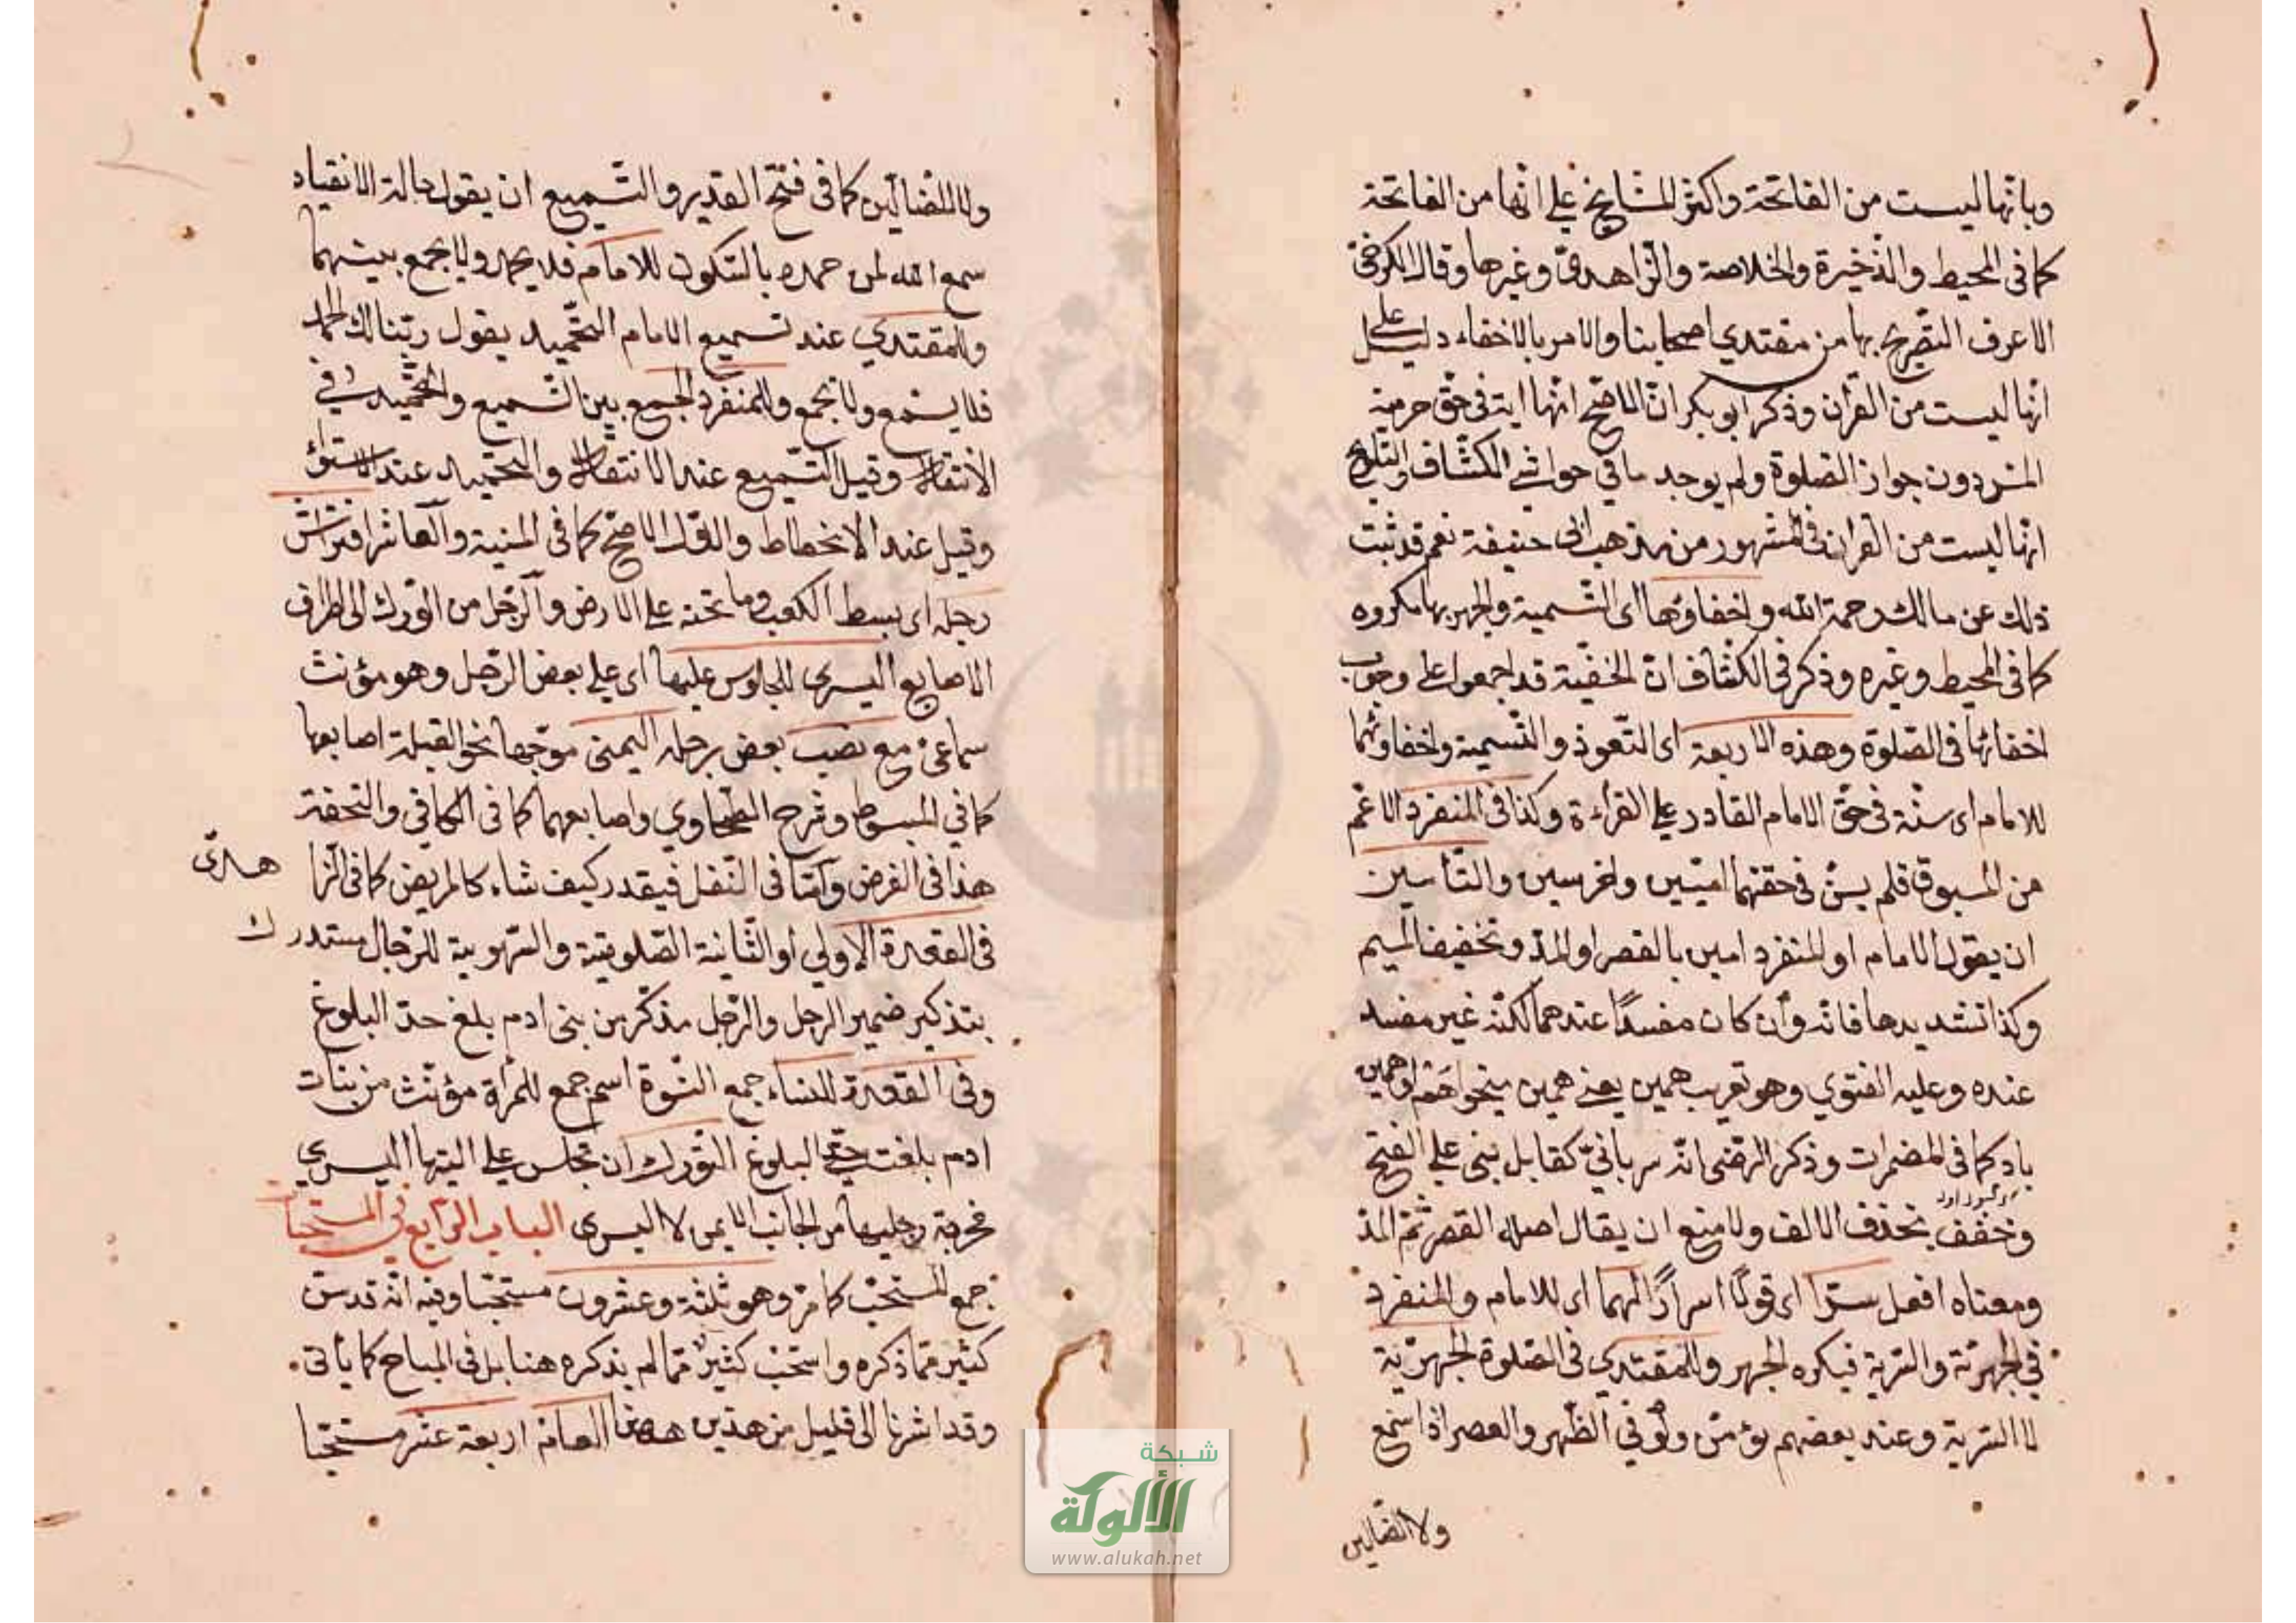 وبانّها ليست من الفاتحة واكثر المشايخ على انّها من الفاتحة
كما فى المحيط والذّخيرة والخلاصة والزّاهدىّ وغيرها وقال الكرخىّ
لا اعرف التّصريح بها من متقدمي اصحابنا والامر بالاخفاء دليل على
انّها ليست من القرأن وذكر ابو بكر انّ الاصّح انّها اية فى حقّ حرمة
المسّ دون جواز الصّلوة ولم يوجد ما في حواشي الكشّاف والتلويح
انّها ليست من القران فى المشهور من مذهب ابى حنيفة نعم قد ثبت
ذلك عن مالك رحمة الله واخفاؤها اى التّسمية والجهر بها مكروه
كما فى المحيط وغيره وذكر فى الكشّاف انّ الحنفيّة قد اجمعوا على وجوب
اخفائها فى الصّلوة وهذه الاربعة اى التّعوذ والتّسمية واخفاؤهما
للامام اى سنّة فى حقّ الامام القادر على القراءة وكذا فى المنفرد الاعّم
من المسبوق فلم يسنّ فى حقهما امّيين واخرسين والتّأمين
ان يقول الامام او المنفرد امين بالقصر او المدّ وتخفيف الميم
وكذا تشديدها فانّه وأن كان مفسدًا عندهما لكنّه غير مفسد
عنده وعليه الفتوي وهو تعريب همين يعنى همين ميخواهم او همين
باد كما فى المضمرات وذكر الرضّى انّه سريانيّ كقابيل بنى على الفتح
وخفّف بحذف الالف ولا منع ان يقال اصله القصر ثمّ المدّ
ومعناه افعل سرّا اى قولًا اسرارًا لهما اى للامام والمنفرد
في الجهريّة والسّريّة فيكره الجهر وللمقتدي فى الصّلوة الجهريّة
لا السّرية وعند بعضهم يؤمّن ولو في الظّهر والعصر اذا سمع
ولا الضّالين
ولا الضّالّين كما فى فتح القدير والتّسميع ان يقول حالة الانقياد
سمع الله لمن حمده بالسّكون للامام فلا يحمد ولا يجمع بينهما
وللمقتدي عند تسميع الامام التّحميد يقول ربّنا لك الحمد
فلا يسمّع ولا يجمع وللمنفرد الجمع بين التّسميع والتّحميد في
الانتقال وقيل التّسميع عند الانتقال والتّحميد عند الاستواء
وقيل عند الانحطاط والاوّل الاصّح كما فى المنية والعاشر افتراش
رجله اى بسط الكعب وما تحته على الارض والرّجل من الورك الى اطراف
الاصابع اليسرى للجلوس عليها اى على بعض الرّجل وهو مؤنث
سماعىّ مع نصب بعض رجله اليمنى موجّها نحو القبلة اصابعها
كما في المبسوط وشرح الطّحاوي واصابعهما كما فى الكافي والتحفة
هذا فى الفرض وامّا فى النّفل فيقعد كيف شاء كالمريض كما فى الزا هدىّ
فى القعدة الاولى او الثّانية الصّلوتية والسّهوية للرّجال مستدرك
بتذكير ضمير الرجل والرّجل مذكّر من بنى ادم بلغ حدّ البلوغ
وفى القعدة للنساء جمع النّسوة اسم جمع للمرأة مؤنّث من بنات
ادم بلغت حدّ البلوغ التّورّك ان تجلس على اليتها اليسري
مخرجة رجليها من الجانب الايمن لا اليسرى الباب الرّابع في المستحبات
جمع المستحبّ كما مرّ وهو ثلثة وعشرون مستحبّا وفيه انّه قد سنّ
كثير ممّا ذكره واستحبّ كثير ممّا لم يذكره هنا بل فى المباح كما يأتى
وقد اشرنا الى قليل من هذين ههنا العامّ اربعة عشر مستحبّا
شبكة
الألوكة
www.alukah.net